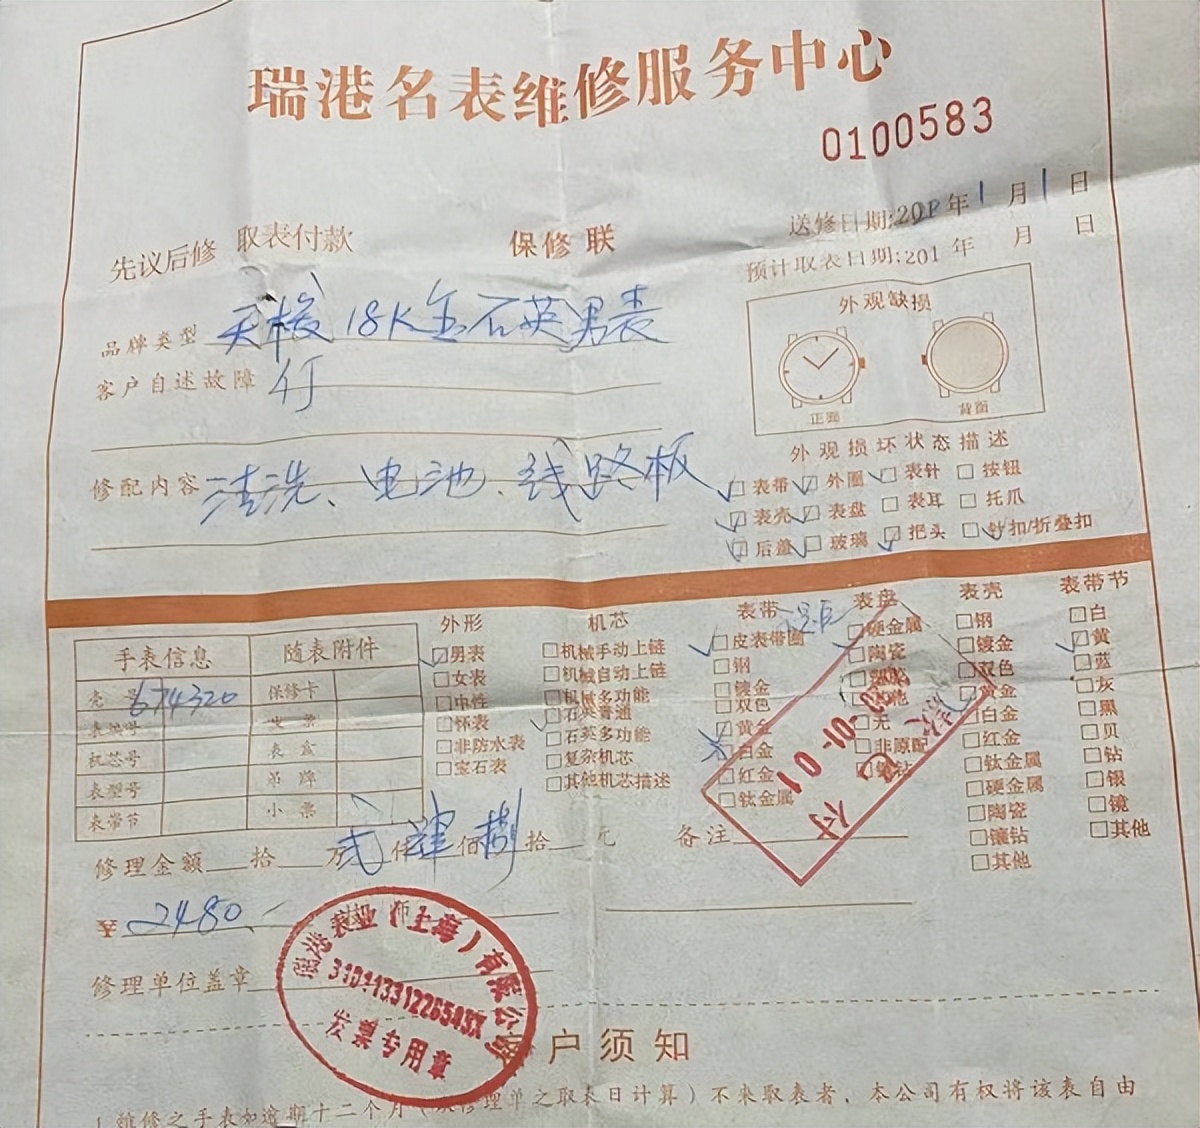 瑞港名表维修服务中心
0100583
送修日期:201 年1月1日
先议后修 取表付款 保修联
预计取表日期:201 年 月 日
外观缺损
正面 背面
品牌类型 天梭18K金石英男表
客户自述故障 行
外观损坏状态描述
修配内容 清洗、电池、线路板
表带 外圈 表针 按钮
表壳 表盘 表耳 托爪
后盖 玻璃 把头 针扣/折叠扣
手表信息 随表附件
壳号 674320 保修卡
表块号 发票
机芯号 表盒
表型号 吊牌
表带节 小票
外形
男表
女表
中性
怀表
非防水表
宝石表
机芯
机械手动上链
机械自动上链
机械多功能
石英普通
石英多功能
复杂机芯
其他机芯描述
表带
皮表带圈
钢
镀金
双色
黄金
白金
红金
钛金属
表盘
硬金属
陶瓷
其他
无
非原配
镶钻
10-01-
表壳
钢
镀金
双色
黄金
白金
红金
钛金属
硬金属
陶瓷
镶钻
其他
表带节
白
黄
蓝
灰
黑
贝
钻
银
镜
其他
修理金额 拾 万 贰 仟 肆 佰 捌 拾 元 备注
¥ 2480.-
修理单位盖章
瑞港表业(上海)有限公司
发票专用章
户须知
1.维修之手表如逾期十二个月(以修理单之取表日计算)不来取表者,本公司有权将该表自由